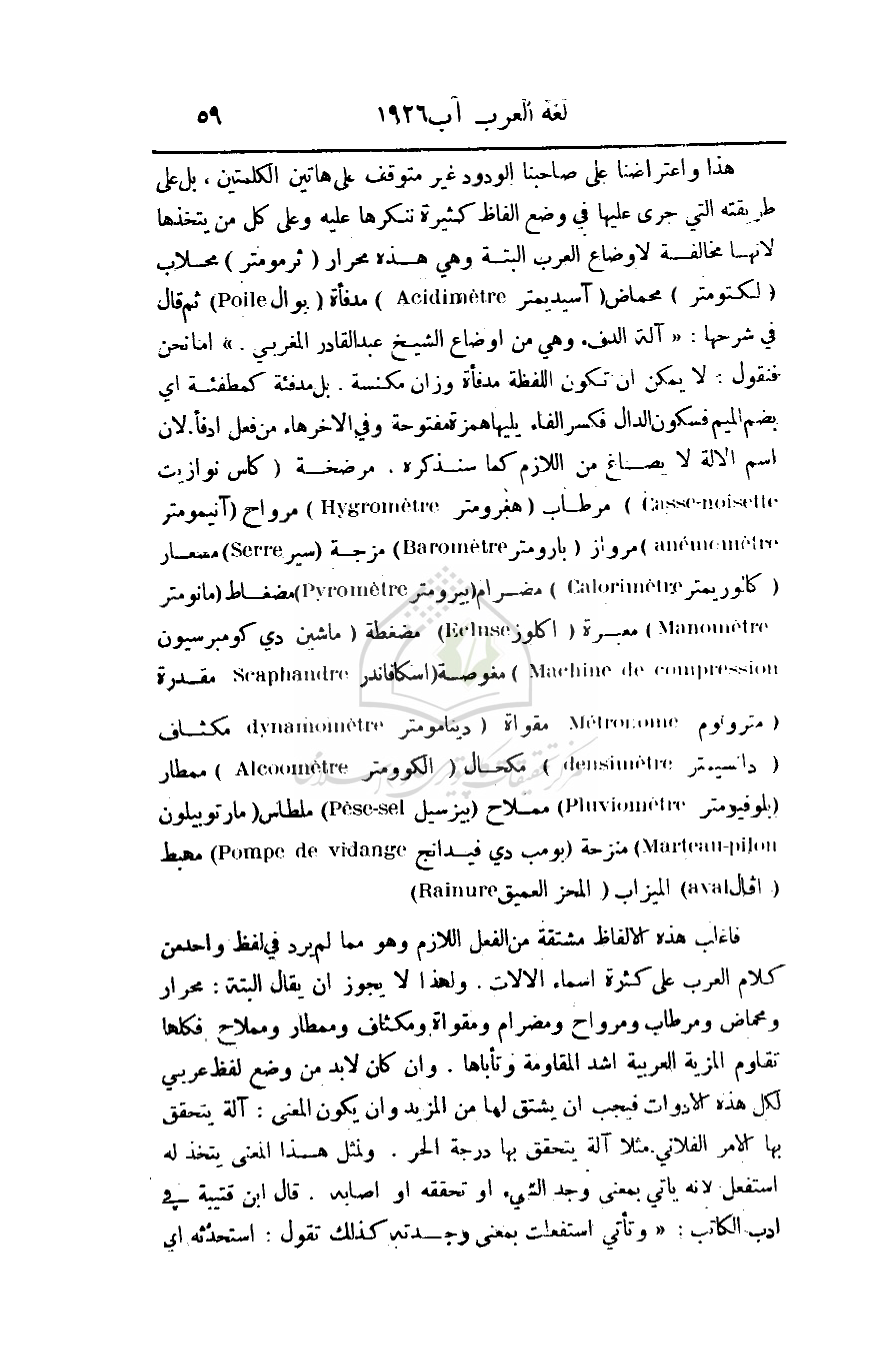 لغة العرب آب ١٩٢٦ ٥٩
هذا واعتراضنا على صاحبنا الودود غير متوقف على هاتين الكلمتين ، بل على
طريقته التي جرى عليها في وضع الفاظ كثيرة ننكرها عليه وعلى كل من يتخذها
لانها مخالفة لاوضاع العرب البتة وهي هذه محرار ( ثرمومتر ) محلاب
( لكتومتر ) محماض ( آسيديمتر Acidimètre ) مدفأة ( بوال Poile) ثم قال
في شرحها : « آلة الدفء وهي من اوضاع الشيخ عبدالقادر المغربي . » اما نحن
فنقول : لا يمكن ان تكون اللفظة مدفأة وزان مكنسة . بل مدفئة كمطفئة اي
بضم الميم فسكون الدال فكسر الفاء يليها همزة مفتوحة وفي الاخر هاء من فعل ادفأ. لان
اسم الالة لا يصاغ من اللازم كما سنذكره . مرضخة ( كاس نوازيت
Casse-noisette ) مرطاب ( هغرومتر Hygromètre ) مرواح (آنيمومتر
anémomètre ) مرواز ( بارومتر Baromètre) مزجة (سير Serre) مسعار
( كالوريمتر Calorimètre ) مضرام (بيرومتر Pyromètre) مضغاط (مانومتر
Manomètre ) معبرة ( اكلوز Ecluse) مضغطة ( ماشين دي كومبرسيون
Machine de compression ) مغوصة (اسكافاندر Scaphandre مقدرة
( مترونوم Métronome مقواة ( دينامومتر dynamomètre مكثاف
( دانسيمتر densimètre ) مكحال ( الكوومتر Alcoomètre ) ممطار
(بلوفيومتر Pluviomètre) مملاح (بيزسيل Pèse-sel) ملطاس ( مارتوبيلون
Marteau-pilon) منزحة (بومب دي فيدانج Pompe de vidange) مهبط
( اڤال aval) الميزاب ( المحز العميق Rainure)
فاغلب هذه الالفاظ مشتقة من الفعل اللازم وهو مما لم يرد في لفظ واحد من
كلام العرب على كثرة اسماء الالات . ولهذا لا يجوز ان يقال البتة : محرار
ومحماض ومرطاب ومرواح ومضرام ومقواة ومكثاف وممطار ومملاح فكلها
تقاوم المزية العربية اشد المقاومة وتأباها . وان كان لابد من وضع لفظ عربي
لكل هذه الادوات فيجب ان يشتق لها من المزيد وان يكون المعنى : آلة يتحقق
بها الامر الفلاني. مثلا آلة يتحقق بها درجة الحر . ولمثل هذا المعنى يتخذ له
استفعل لانه ياتي بمعنى وجد الشيء او تحققه او اصابه . قال ابن قتيبة في
ادب الكاتب : « وتأتي استفعلت بمعنى وجدته كذلك تقول :  اي